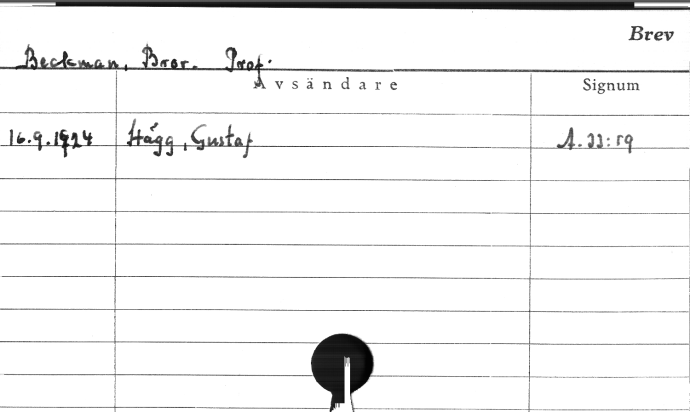 Brev
Beckman, Bror. Prof.
Avsändare Signum
16.9.1924 Hägg, Gustaf